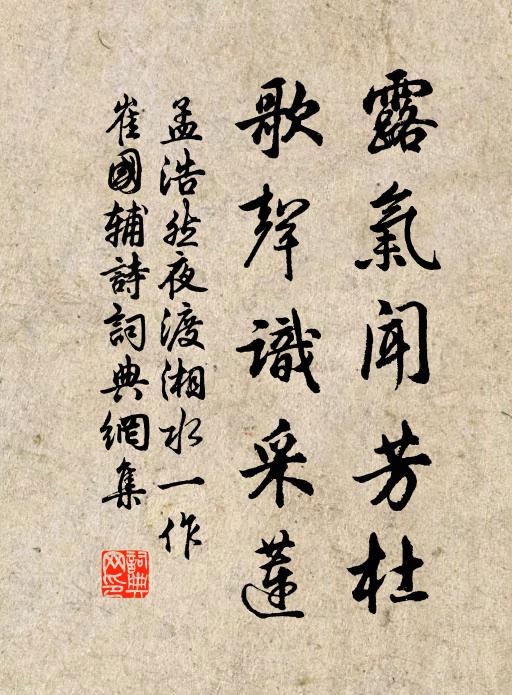 露氣聞芳杜
歌聲識采蓮
孟浩然夜渡湘水一作
崔國辅詩詞典網集
詞典網印